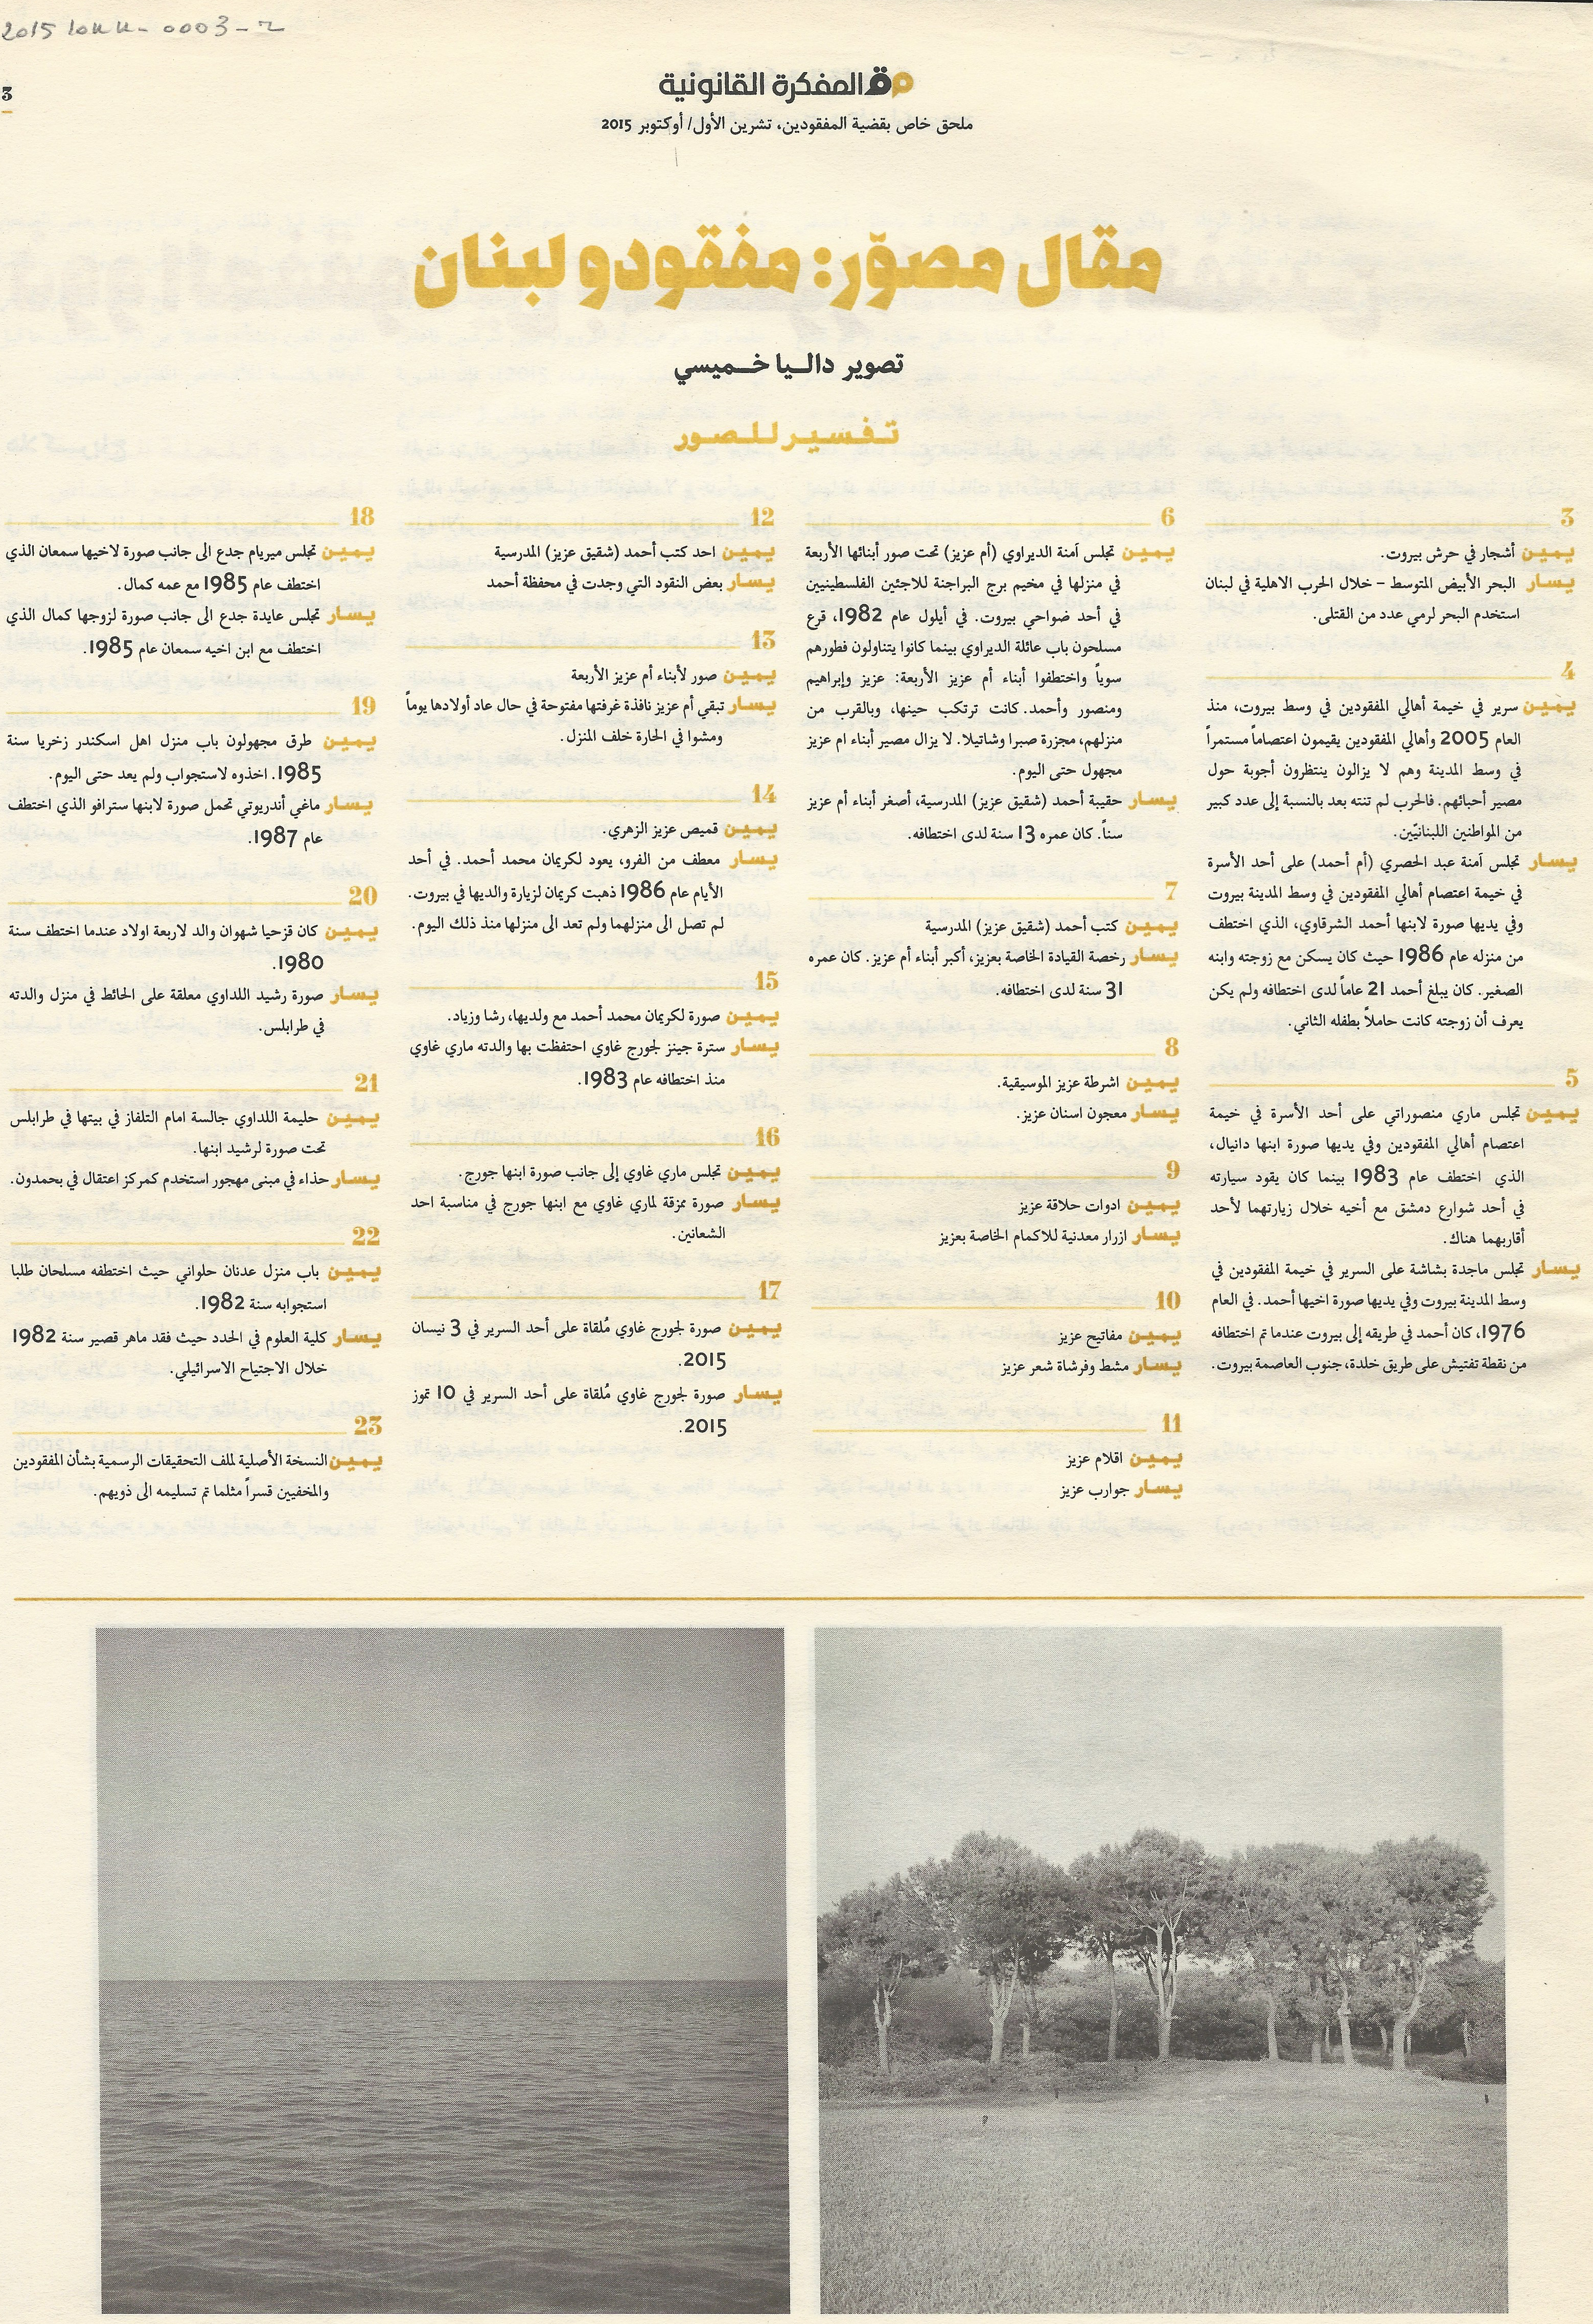 2015
3
المفكرة القانونية
ملحق خاص بقضية المفقودين، تشرين الأول/ أوكتوبر 2015
مقال مصوّر: مفقودو لبنان
تصوير داليا خميسي
تفسير للصور
3
يمين أشجار في حرش بيروت.
يسار البحر الأبيض المتوسط – خلال الحرب الاهلية في لبنان
استخدم البحر لرمي عدد من القتلى.
4
يمين سرير في خيمة أهالي المفقودين في وسط بيروت، منذ
العام 2005 وأهالي المفقودين يقيمون اعتصاماً مستمراً
في وسط المدينة وهم لا يزالون ينتظرون أجوبة حول
مصير أحبائهم. فالحرب لم تنته بعد بالنسبة إلى عدد كبير
من المواطنين اللبنانيّين.
يسار تجلس آمنة عبد الحصري (أم أحمد) على أحد الأسرة
في خيمة اعتصام أهالي المفقودين في وسط المدينة بيروت
وفي يديها صورة لابنها أحمد الشرقاوي، الذي اختطف
من منزله عام 1986 حيث كان يسكن مع زوجته وابنه
الصغير. كان يبلغ أحمد 21 عاماً لدى اختطافه ولم يكن
يعرف أن زوجته كانت حاملاً بطفله الثاني.
5
يمين تجلس ماري منصوراتي على أحد الأسرة في خيمة
اعتصام أهالي المفقودين وفي يديها صورة ابنها دانيال،
الذي اختطف عام 1983 بينما كان يقود سيارته
في أحد شوارع دمشق مع أخيه خلال زيارتهما لأحد
أقاربهما هناك.
يسار تجلس ماجدة بشاشة على السرير في خيمة المفقودين في
وسط المدينة بيروت وفي يديها صورة اخيها أحمد. في العام
1976، كان أحمد في طريقه إلى بيروت عندما تم اختطافه
من نقطة تفتيش على طريق خلدة، جنوب العاصمة بيروت.
6
يمين تجلس آمنة الديراوي (أم عزيز) تحت صور أبنائها الأربعة
في منزلها في مخيم برج البراجنة للاجئين الفلسطينيين
في أحد ضواحي بيروت. في أيلول عام 1982، قرع
مسلحون باب عائلة الديراوي بينما كانوا يتناولون فطورهم
سوياً واختطفوا أبناء أم عزيز الأربعة: عزيز وإبراهيم
ومنصور وأحمد. كانت ترتكب حينها، وبالقرب من
منزلهم، مجزرة صبرا وشاتيلا. لا يزال مصير أبناء ام عزيز
مجهول حتى اليوم.
يسار حقيبة أحمد (شقيق عزيز) المدرسية، أصغر أبناء أم عزيز
سناً. كان عمره 13 سنة لدى اختطافه.
7
يمين كتب أحمد (شقيق عزيز) المدرسية
يسار رخصة القيادة الخاصة بعزيز، أكبر أبناء أم عزيز. كان عمره
31 سنة لدى اختطافه.
8
يمين اشرطة عزيز الموسيقية.
يسار معجون اسنان عزيز.
9
يمين ادوات حلاقة عزيز
يسار ازرار معدنية للاكمام الخاصة بعزيز
10
يمين مفاتيح عزيز
يسار مشط وفرشاة شعر عزيز
11
يمين اقلام عزيز
يسار جوارب عزيز
12
يمين احد كتب أحمد (شقيق عزيز) المدرسية
يسار بعض النقود التي وجدت في محفظة أحمد
13
يمين صور لأبناء أم عزيز الأربعة
يسار تبقي أم عزيز نافذة غرفتها مفتوحة في حال عاد أولادها يوماً
ومشوا في الحارة خلف المنزل.
14
يمين قميص عزيز الزهري.
يسار معطف من الفرو، يعود لكريمان محمد أحمد. في أحد
الأيام عام 1986 ذهبت كريمان لزيارة والديها في بيروت.
لم تصل الى منزلهما ولم تعد الى منزلها منذ ذلك اليوم.
15
يمين صورة لكريمان محمد أحمد مع ولديها، رشا وزياد.
يسار سترة جينز لجورج غاوي احتفظت بها والدته ماري غاوي
منذ اختطافه عام 1983.
16
يمين تجلس ماري غاوي إلى جانب صورة ابنها جورج.
يسار صورة ممزقة لماري غاوي مع ابنها جورج في مناسبة احد
الشعانين.
17
يمين صورة لجورج غاوي مُلقاة على أحد السرير في 3 نيسان
2015.
يسار صورة لجورج غاوي مُلقاة على أحد السرير في 10 تموز
2015.
18
يمين تجلس ميريام جدع الى جانب صورة لاخيها سمعان الذي
اختطف عام 1985 مع عمه كمال.
يسار تجلس عايدة جدع الى جانب صورة لزوجها كمال الذي
اختطف مع ابن اخيه سمعان عام 1985.
19
يمين طرق مجهولون باب منزل اهل اسكندر زخريا سنة
1985. اخذوه لاستجواب ولم يعد حتى اليوم.
يسار ماغي أندريوتي تحمل صورة لابنها سترافو الذي اختطف
عام 1987.
20
يمين كان قزحيا شهوان والد لاربعة اولاد عندما اختطف سنة
1980.
يسار صورة رشيد اللداوي معلقة على الحائط في منزل والدته
في طرابلس.
21
يمين حليمة اللداوي جالسة امام التلفاز في بيتها في طرابلس
تحت صورة لرشيد ابنها.
يسار حذاء في مبنى مهجور استخدم كمركز اعتقال في بحمدون.
22
يمين باب منزل عدنان حلواني حيث اختطفه مسلحان طلبا
استجوابه سنة 1982.
يسار كلية العلوم في الحدد حيث فقد ماهر قصير سنة 1982
خلال الاجتياح الاسرائيلي.
23
يمين النسخة الأصلية لملف التحقيقات الرسمية بشأن المفقودين
والمخفيين قسراً مثلما تم تسليمه الى ذويهم.